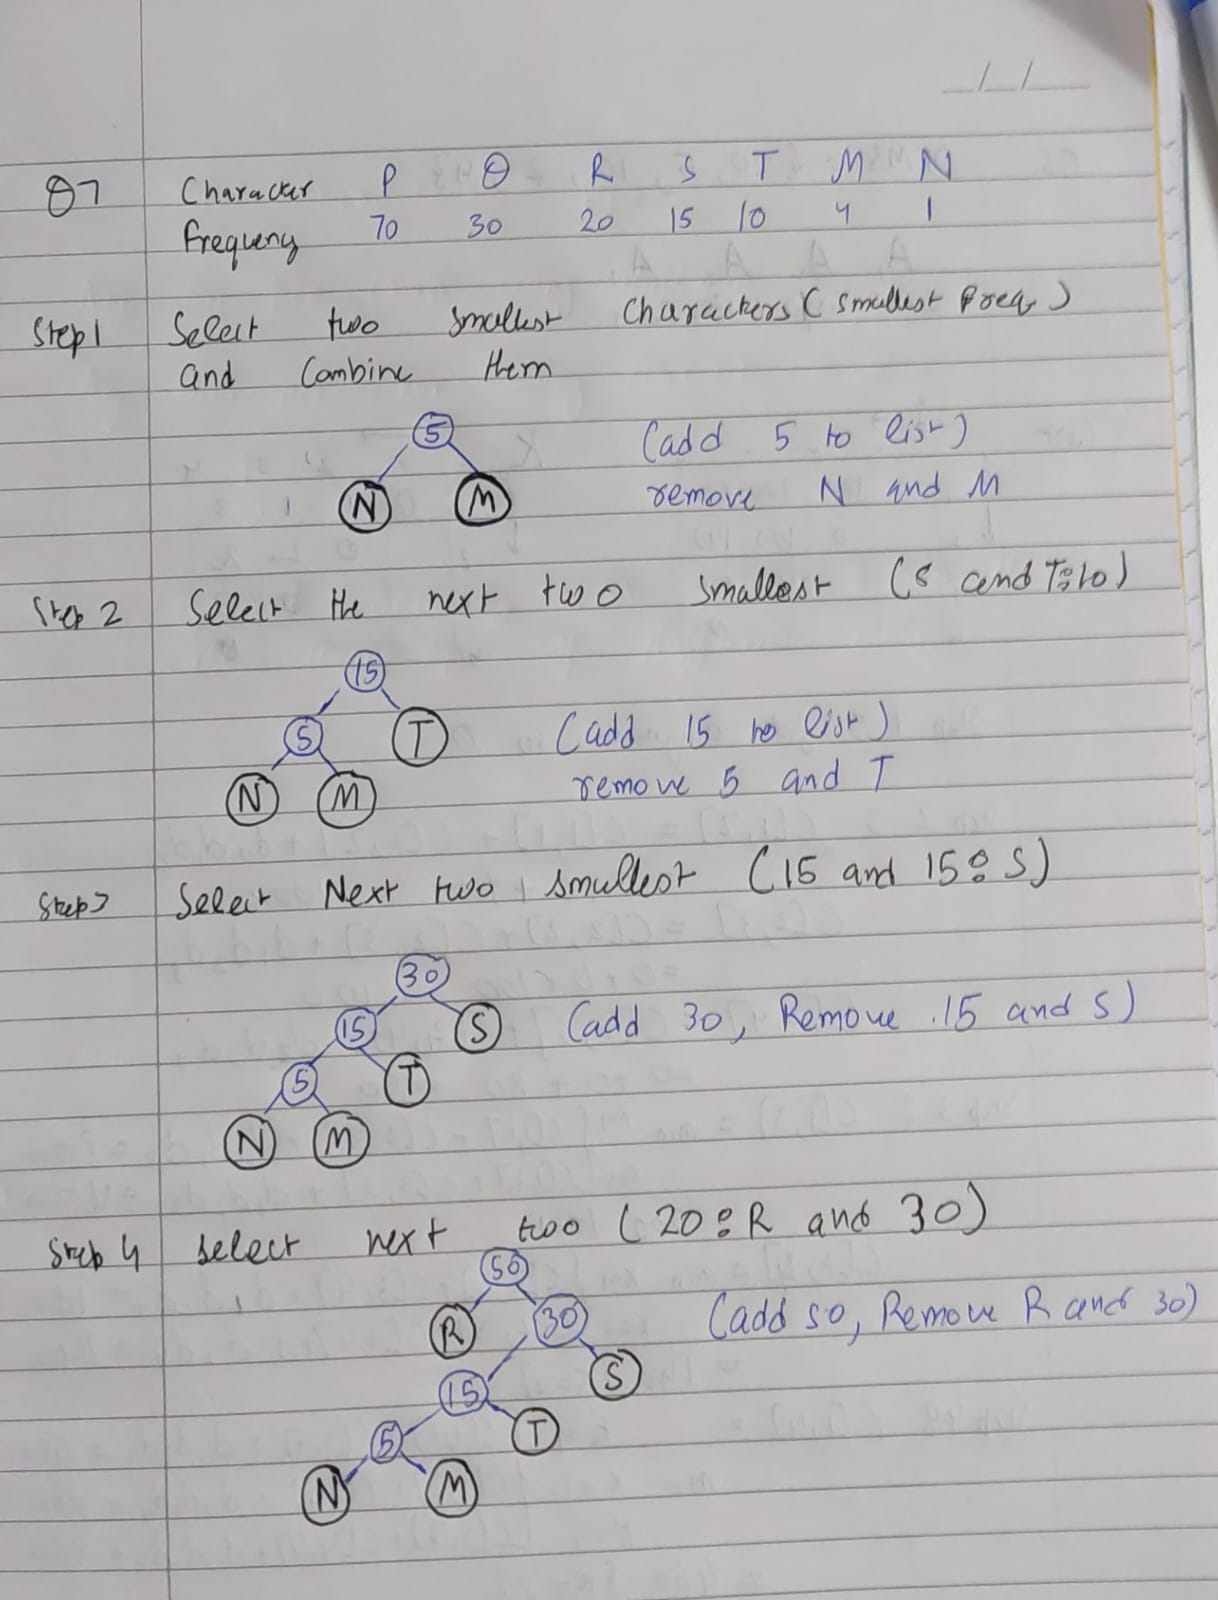 _/_/_
Q7 Character P Q R S T M N
Frequency 70 30 20 15 10 4 1
Step1 Select two smallest Charackers (smallest freq.)
and Combine them
5 (add 5 to list)
N M remove N and M
Step 2 Select the next two smallest (5 and T:10)
15
5 T (add 15 to list)
N M remove 5 and T
Step3 Select Next two smallest (15 and 15: S)
30
15 S (add 30, Remove 15 and S)
5 T
N M
Step 4 select next two (20: R and 30)
50
R 30 (add 50, Remove R and 30)
15 S
5 T
N M